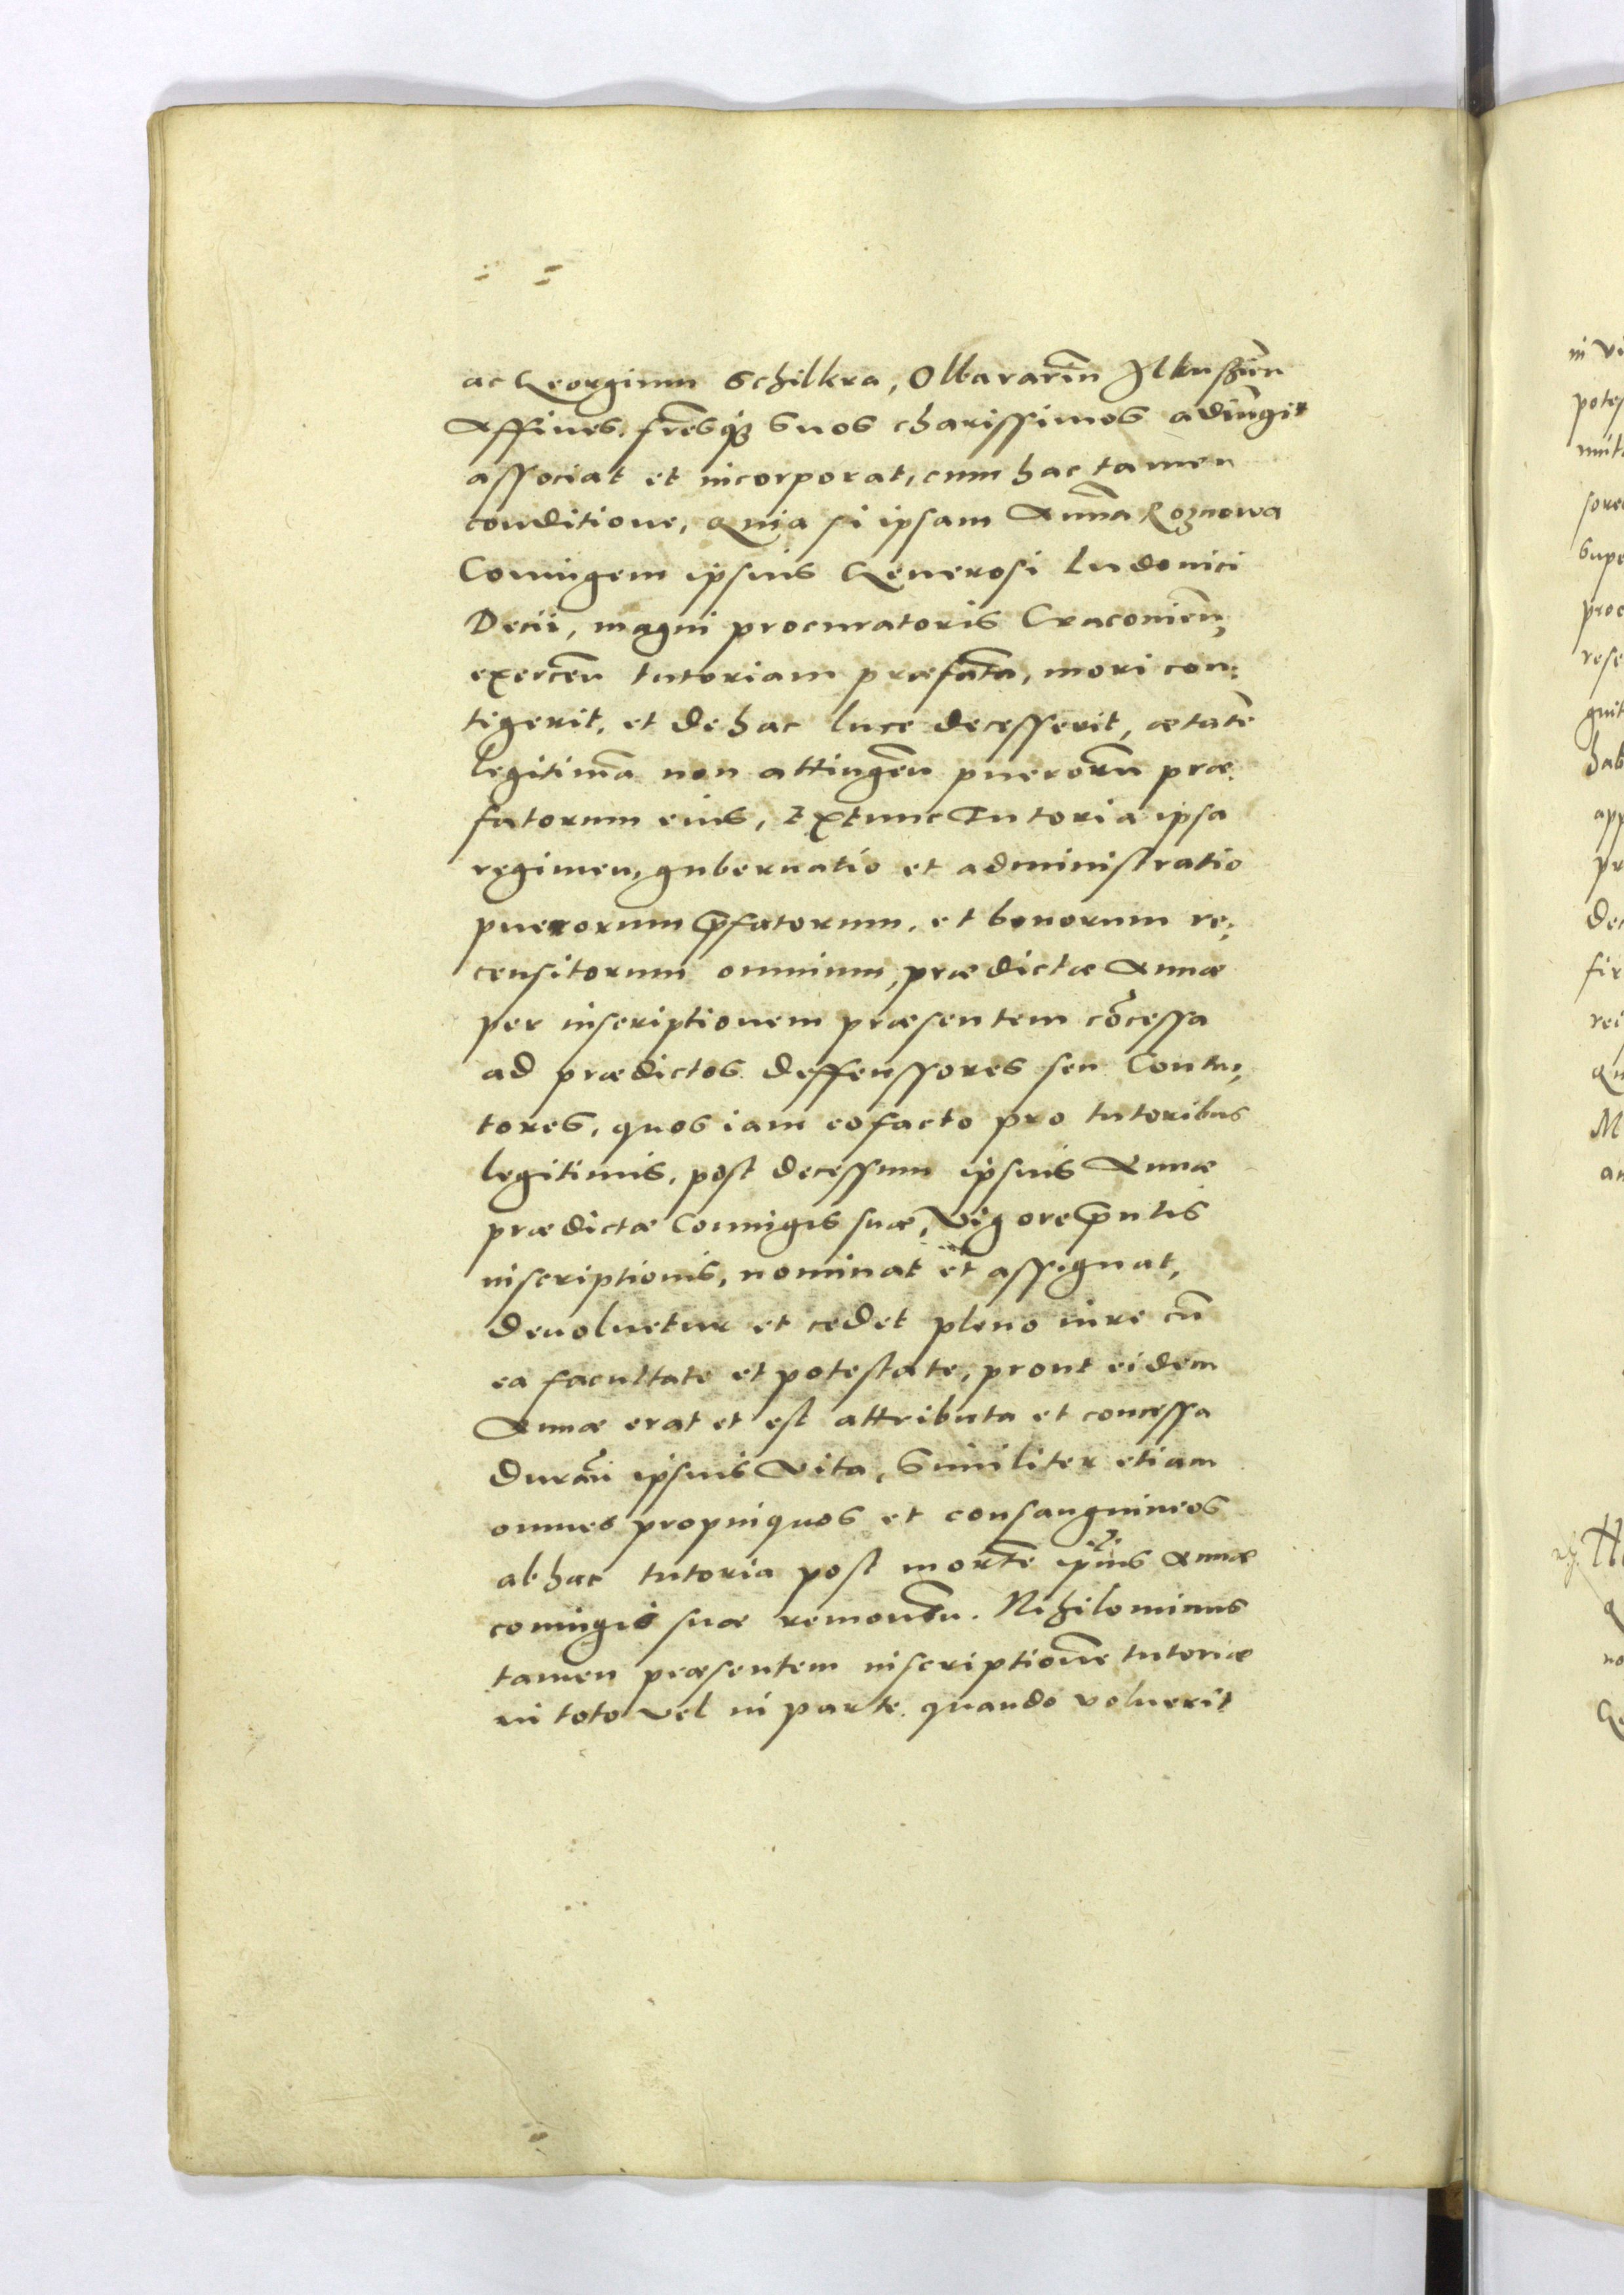 ac Georgium Schilkra, Olbararin Ilkusien
Affines, fresq́ȝ suos charissimos adiungit
associat et incorporat, cum hac tamen
conditione, Quia si ipsam Annā Roznowa
Coniugem ipsius Generosi Ludouici
Decii, magni procuratoris Cracouien̄,
exercen̄ tutoriam præfatā, mori con:
tigerit, et de hac luce decesserit, ætatē
legitimā non attingen̄ puerorū præ,
fatorum eius, Extunc Tutoria ipsa
regimen, gubernatio et administratio
puerorum p̄fatorum, et bonorum re,
censitorum omnium, prædictæ Annæ
per inscriptionem præsentem cōcessa
ad prædictos deffenssores seu Contu,
tores, quos iam eo facto pro tutoribus
legitimis, post decessum ipsius Annæ
prædictæ Coniugis suæ, vigore p̄ntis
inscriptionis, nominat et assignat,
deuoluetur et cedet pleno iure cū
ea facultate et potestate, prout eidem
Annæ erat et est attributa et concessa
duran̄ ipsius vita, Similiter etiam
omnes propinquos et consanguineos
ab hac tutoria post mortē ip̄ius Annæ
coniugis suæ remouen̄. Nihilominus
tamen præsentem inscriptionē tutoriæ
in toto vel in parte, quando voluerit